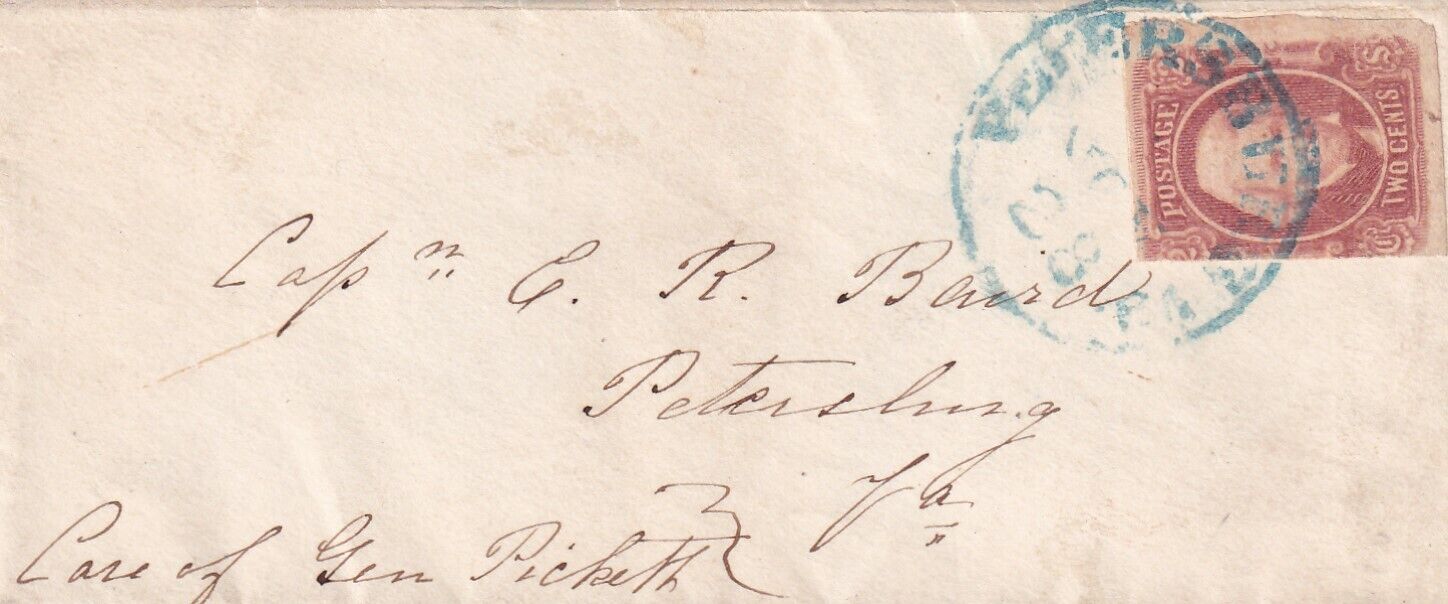 PETERSBURG
VA.
POSTAGE
TWO CENTS
Capn E. R. Baird
Petersburg
Va
Care of Gen Pickett